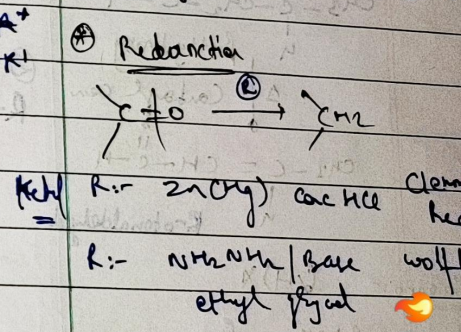 A*
K'
* Reduction
R
C=O → CH2
Ketyl R:- Zn(Hg) Conc HCl Clemm
Red
R:- NH2NH2/Base wolf
ethyl glycol